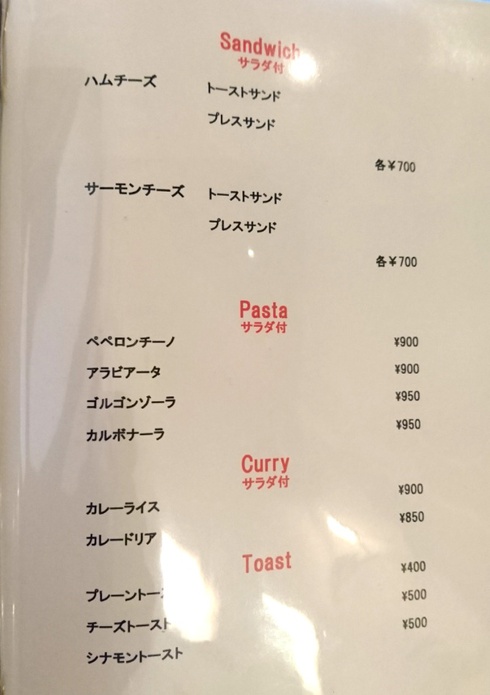 Sandwich
サラダ付
ハムチーズ トーストサンド
プレスサンド
各¥700
サーモンチーズ トーストサンド
プレスサンド
各¥700
Pasta
サラダ付
ペペロンチーノ ¥900
アラビアータ ¥900
ゴルゴンゾーラ ¥950
カルボナーラ ¥950
Curry
サラダ付
カレーライス ¥900
カレードリア ¥850
Toast
プレーントー ¥400
チーズトースト ¥500
シナモントースト ¥500